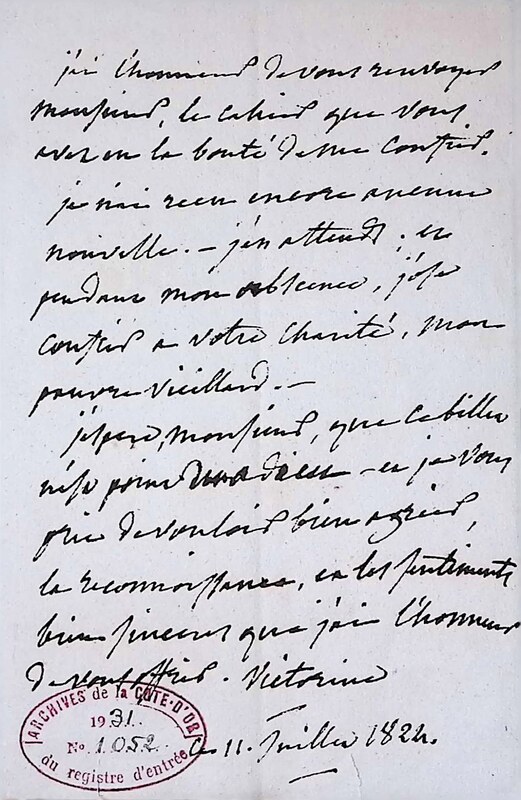 j'ai l'honneur de vous renvoyer
Monsieur, le cahier que vous
avez eu la bonté de me confier.
je n'ai reçu encore aucune
nouvelle. – j'en attends ; et
pendant mon absence, j'ose
confier a votre charité, mon
pauvre vieillard. –
j'espere, monsieur, que ce billet
n'est point un adieu – et je vous
prie de vouloir bien agréer,
la reconnoissance, et les sentiments
bien sinceres que j'ai l'honneur
de vous offrir. Victorine
ce 11. Juillet 1824.
ARCHIVES de la CÔTE-D'OR
1931.
No. 1052.
du registre d'entrée